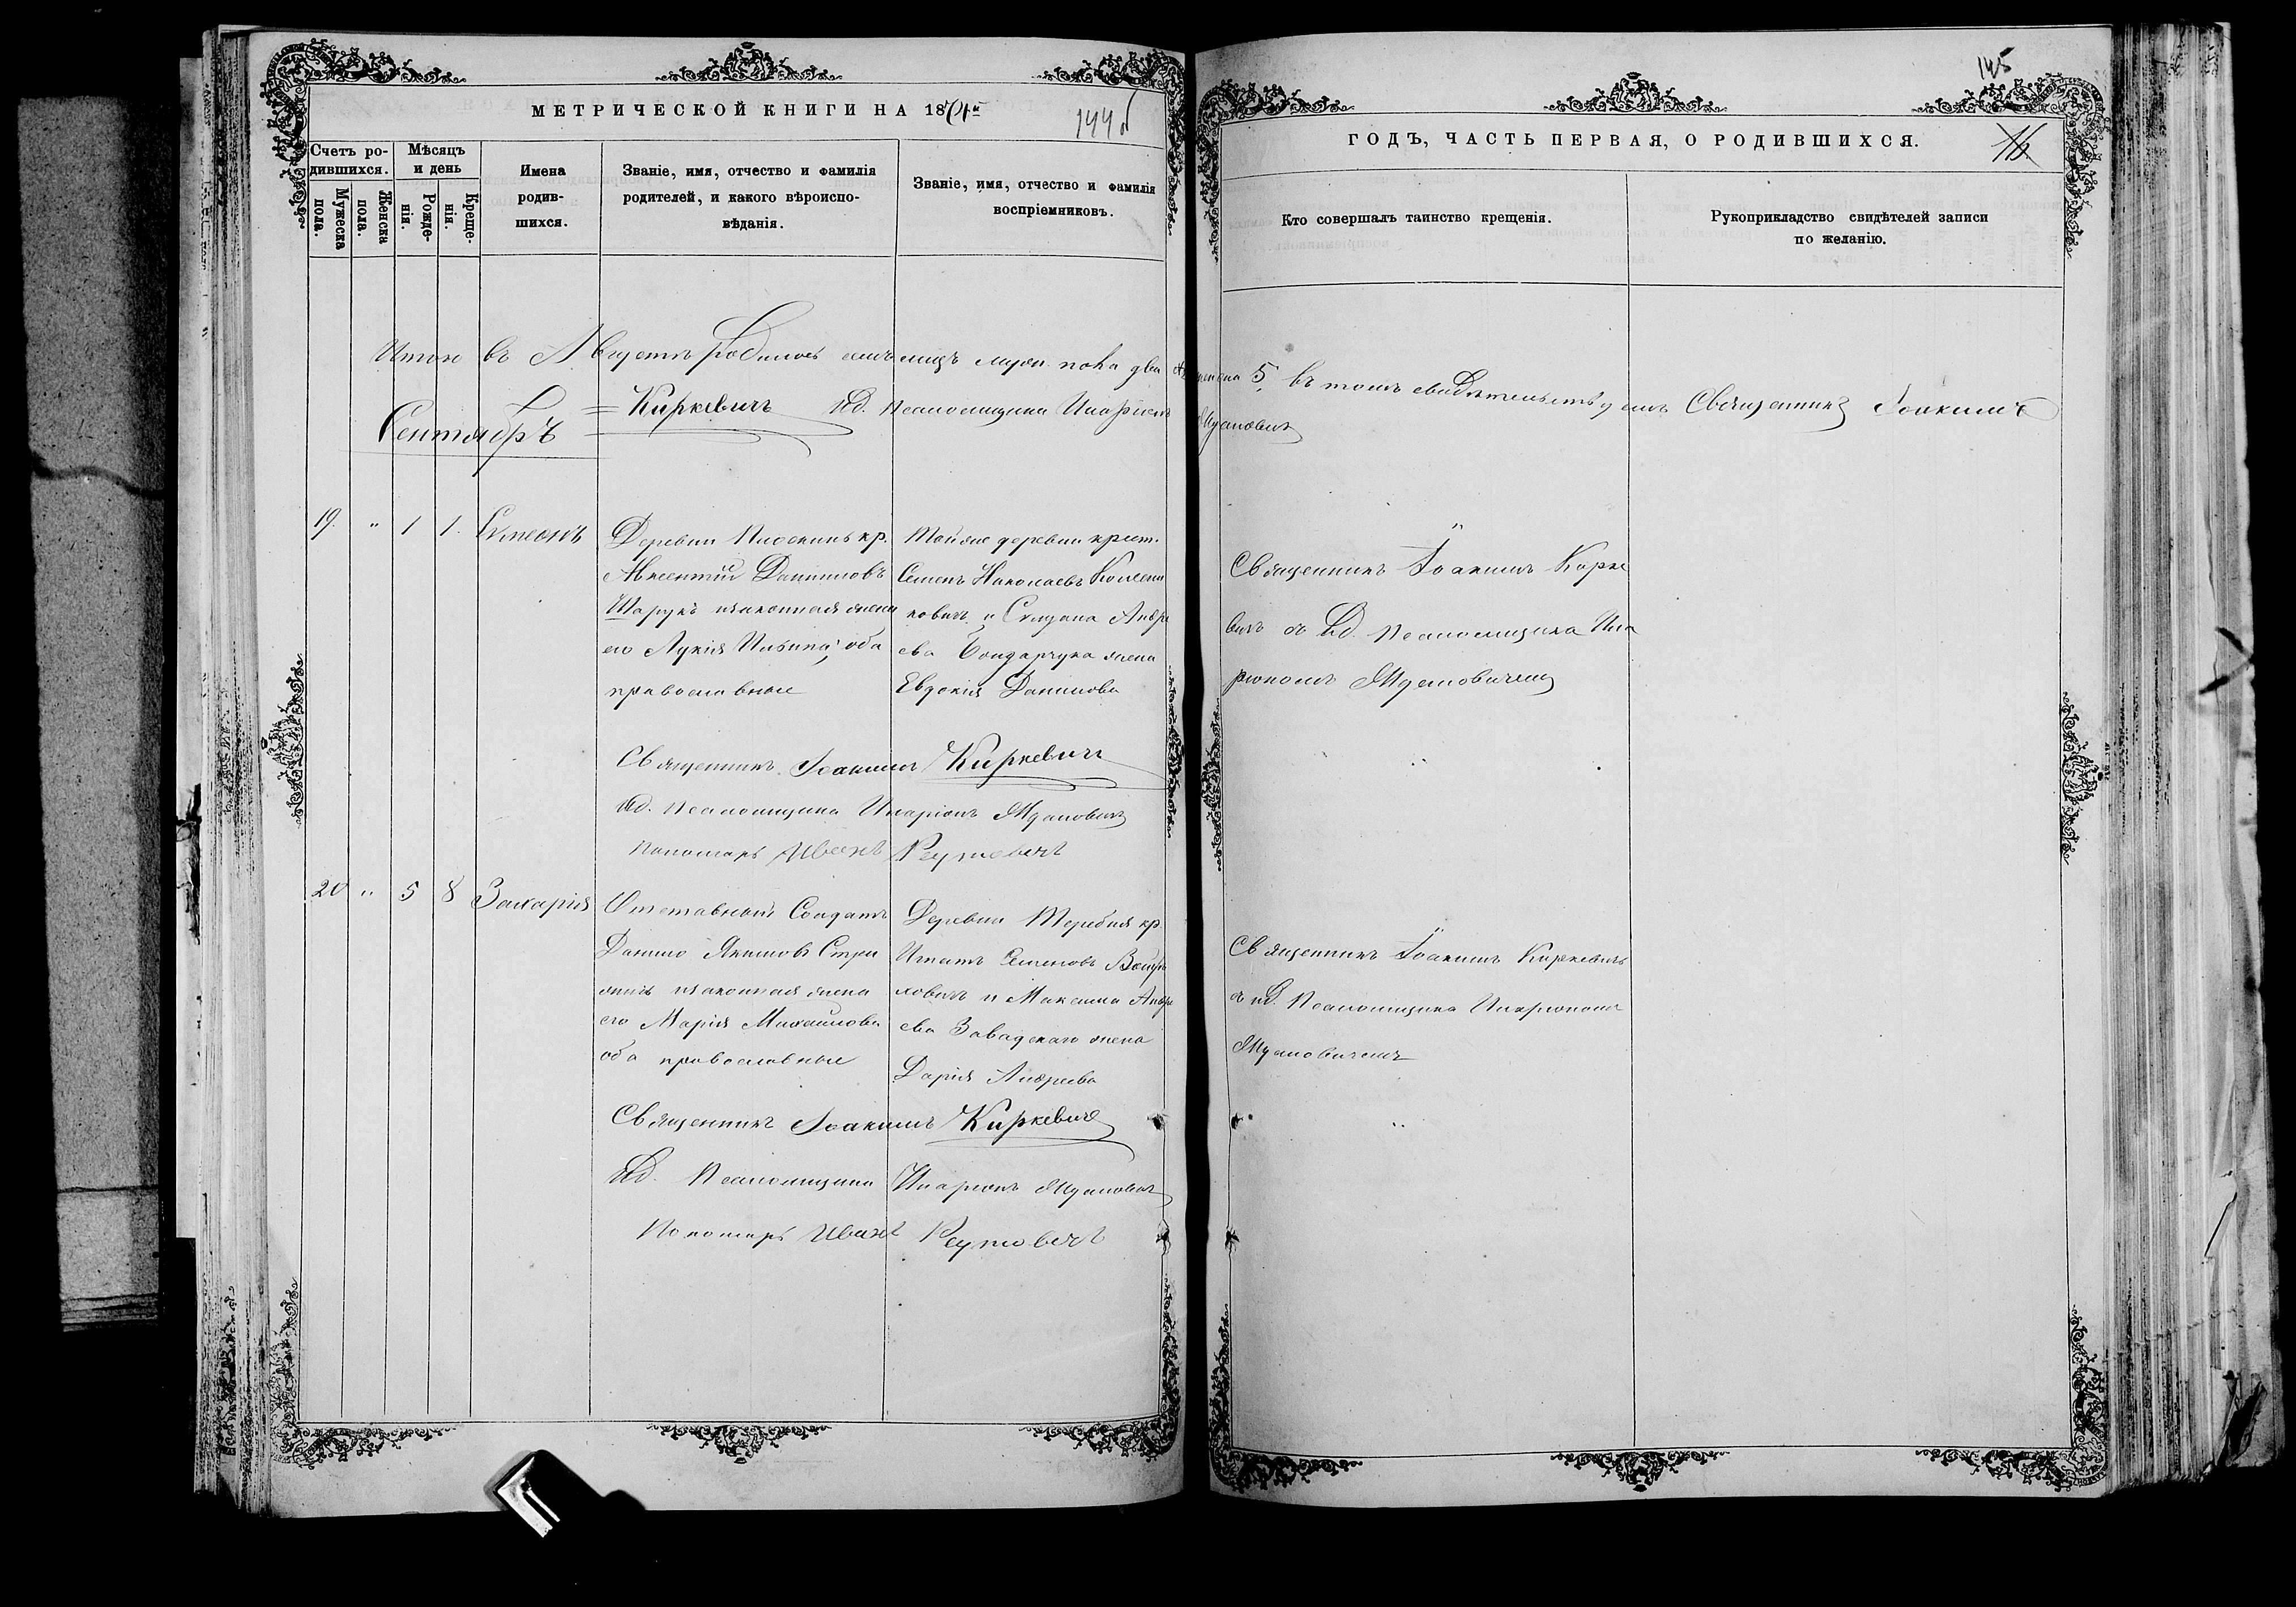 МЕТРИЧЕСКОЙ КНИГИ НА 18
144 об
Счетъ ро-
дившихся.
Мужеска
пола.
Женска
пола.
Мѣсяцъ
и день
Рожде-
нія.
Креще-
нія.
Имена
родив-
шихся.
Званіе, имя, отчество и фамилія
родителей, и какого вѣроиспо-
вѣданія.
Званіе, имя, отчество и фамилія
воспріемниковъ.
Итого въ Августѣ родилось муж. пола два
Киркевичъ Ид. Псаломщика Иларіонъ
Сентябрь
19. " 1 1. Симеонъ
Деревни кр.
Авксентій Даниловъ
Шарукъ и законная жена
его Лукія Ильина; оба
православные
Той же деревни крест.
Семенъ Николаевъ
ковичъ и Андре
ева Бондарчука жена
Евдокія Данилова
Священникъ Іоакимъ Киркевичъ
Ид. Псаломщика Иларіонъ Ждановичъ
Пономарь Иванъ Реутовичъ
20 " 5 8 Захарія
Отставный Солдатъ
Данило Якимовъ Стри
и законная жена
его Марія Михайлова
оба православные
Деревни Теребня кр.
Игнатъ Семеновъ
ховичъ и Максима Андре
ева Завадскаго жена
Дарія Андреева
Священникъ Іоакимъ Киркевичъ
Ид. Псаломщика Иларіонъ Ждановичъ
Пономарь Иванъ Реутовичъ
145
ГОДЪ, ЧАСТЬ ПЕРВАЯ, О РОДИВШИХСЯ.
16
Кто совершалъ таинство крещенія.
Рукоприкладство свидѣтелей записи
по желанію.
5, въ томъ свидѣтельствуемъ Священникъ Іоакимъ
Ждановичъ
Священникъ Іоакимъ Кирке
вичъ съ Ид. Псаломщика Ила
ріономъ Ждановичемъ
Священникъ Іоакимъ Киркевичъ
съ ид. Псаломщика Иларіономъ
Ждановичемъ